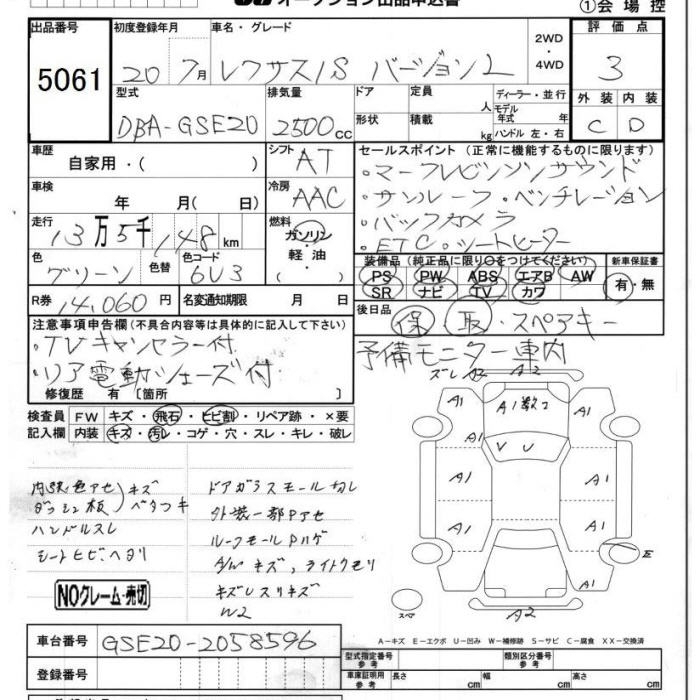 オークション出品申込書
①会場控
出品番号
5061
初度登録年月
20 7月
車名・グレード
レクサスIS バージョンL
2WD
・
4WD
評価点
3
型式
DBA-GSE20
排気量
2500cc
ドア
形状
定員
人
積載
kg
ディーラー・並行
モデル
年式 年
ハンドル 左・右
外装
内装
C
D
車歴
自家用・( )
シフト
AT
セールスポイント (正常に機能するものに限ります)
・マークレビンソンサウンド
・サンルーフ・ベンチレーション
・バックカメラ
・ETC・シートヒーター
車検
年 月( 日)
冷房
AAC
走行
13万5千148km
燃料
ガソリン
・
軽油
( )
色
グリーン
色替
色コード
6V3
装備品 (純正品に限り○をつけてください)
PS PW ABS エアB AW
SR ナビ TV カワ
新車保証書
有・無
R券
14,060円
名変通知期限 月 日
後日品
保・取・スペアキー
予備モニター車内
注意事項申告欄(不具合内容等は具体的に記入して下さい)
・TVキャンセラー付
・リア電動シェーズ付
修復歴 有 〔箇所
検査員
記入欄
FW キズ・飛石・ヒビ割・リペア跡・×要
内装 キズ・汚レ・コゲ・穴・スレ・キレ・破レ
A2
A1
A1数2
A1
A1
V U
A1
A1
A1
A1
A1
E
スペア
A2
ダッシュ板
キズ
ベタつキ
ハンドルスレ
シートヒビ、ヘタリ
ドアガラスモール切レ
外装一部Pアセ
ルーフモールPハゲ
AWキズ、ライトクモリ
キズレスリキズ
W2
NOクレーム・売切
A－キズ E－エクボ U－凹み W－補修跡 S－サビ C－腐食 XX－交換済
車台番号
GSE20-2058596
登録番号
型式指定番号
参考
類別区分番号
参考
車庫証明用
参考
長さ
cm
幅
cm
高さ
cm